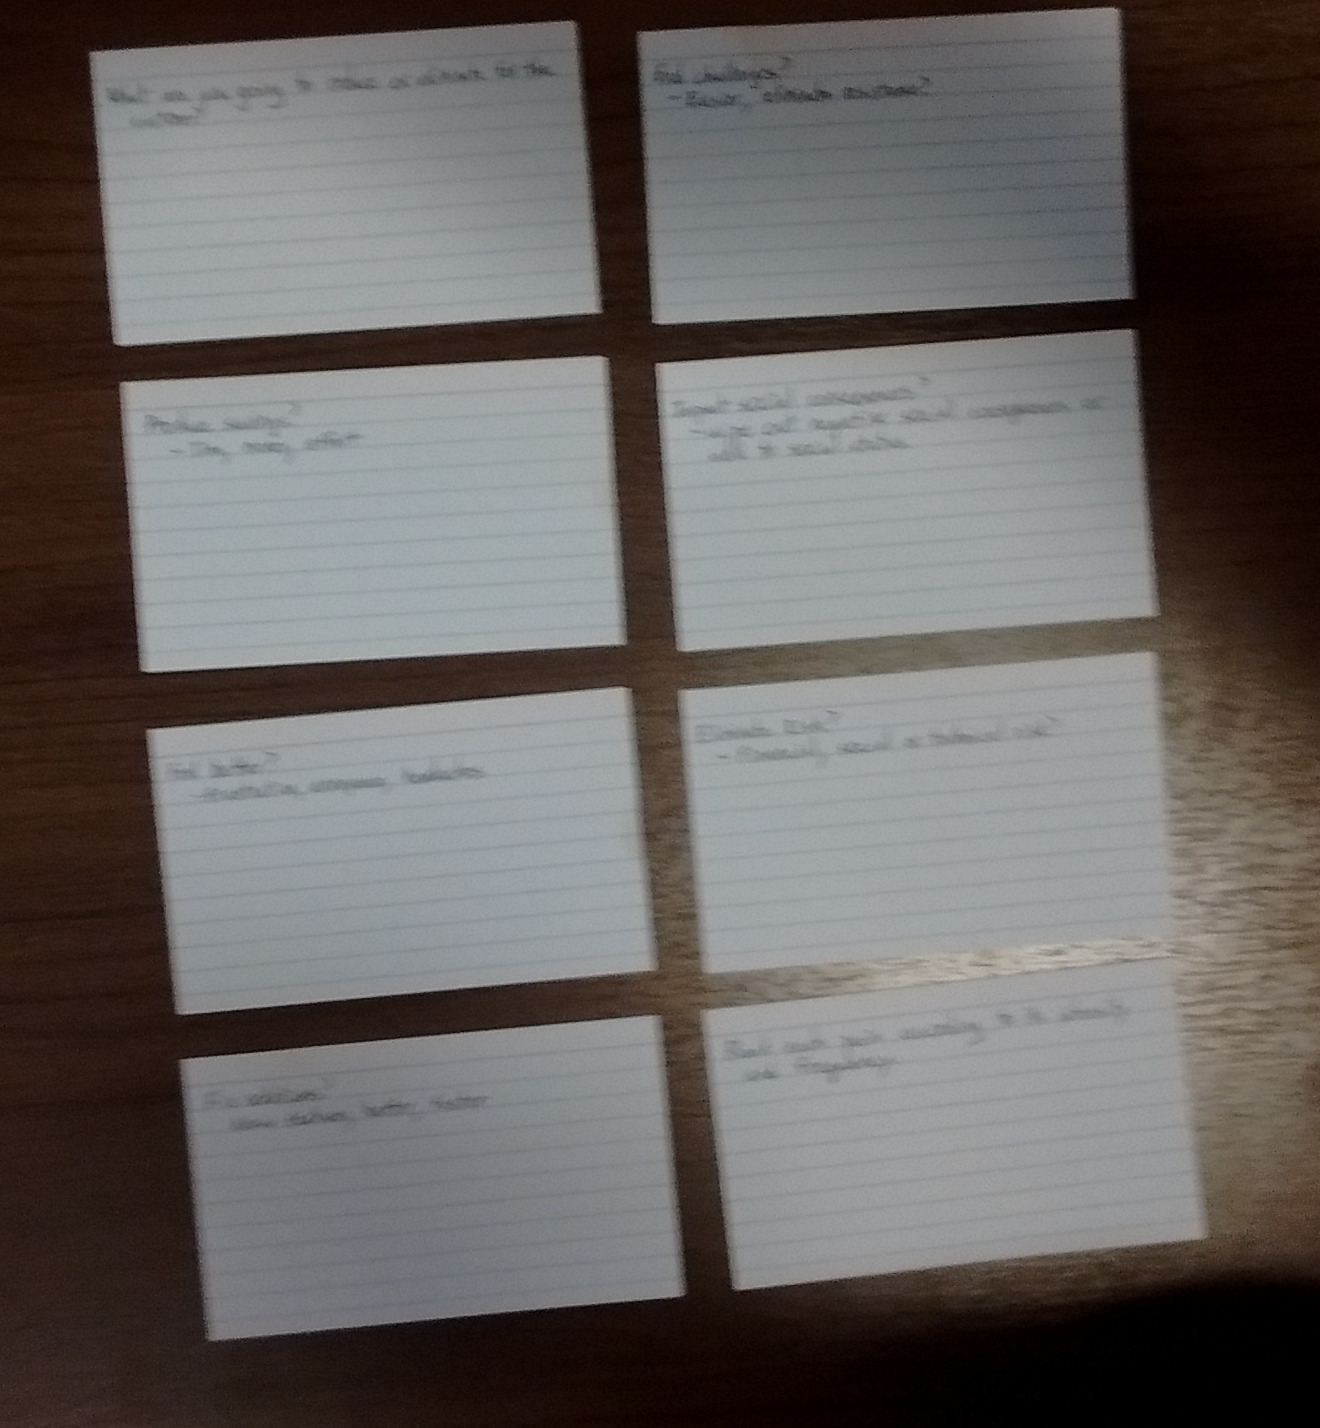 What are you going to reduce or eliminate for the
customer?
End challenges?
- Easier, eliminate resistance?
Produce savings?
- Time, money, effort
Impact social consequences?
- wipe out negative social consequences or
add to social status
Feel better?
- frustration, annoyance, headaches
Eliminate risk?
- Financial, social or technical risk?
Fix solutions?
New features, better, faster
Rank each pain according to its intensity
and frequency